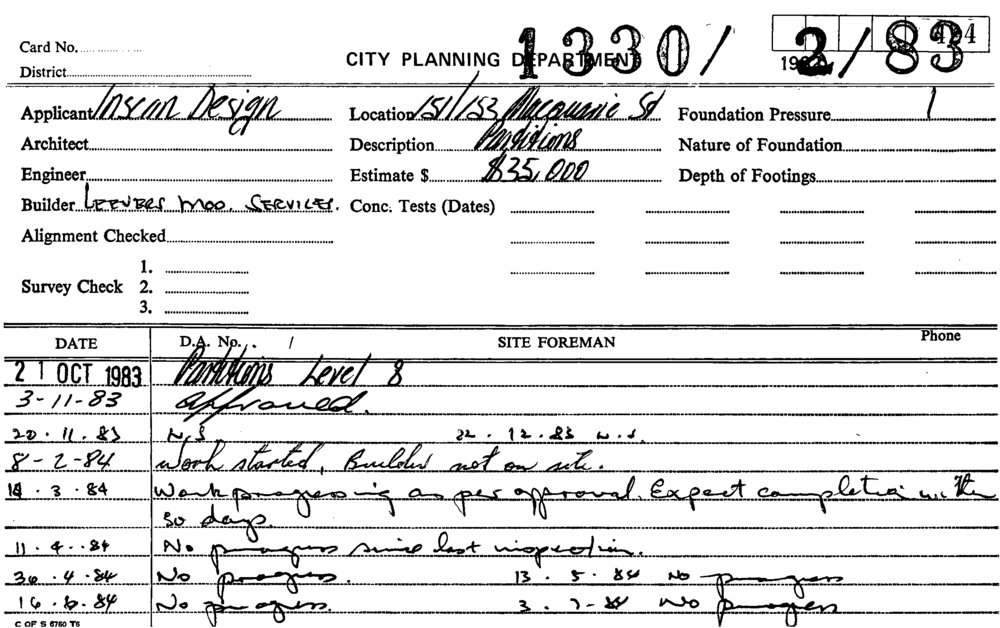 Card No.
CITY PLANNING DEPARTMENT 1330/ 2/83
District
Applicant Inscan Design Location 151/153 Macquarie St Foundation Pressure
Architect Description Partitions Nature of Foundation
Engineer Estimate $ $35,000 Depth of Footings
Builder LEEVERS MOD. SERVICES. Conc. Tests (Dates)
Alignment Checked
1.
Survey Check 2.
3.
DATE D.A. No. / SITE FOREMAN Phone
21 OCT 1983 Partitions Level 8
3-11-83 approved.
20.11.83 N.S 22.12.83 N.S.
8-2-84 Work started, Builder not on site.
14.3.84 Work progressing as per approval. Expect completion in the
30 days.
11.4.84 No progress since last inspection.
30.4.84 No progress. 13.5.84 No progress
16.6.84 No progress. 3.7.84 No progress
C OF S 5760 T6